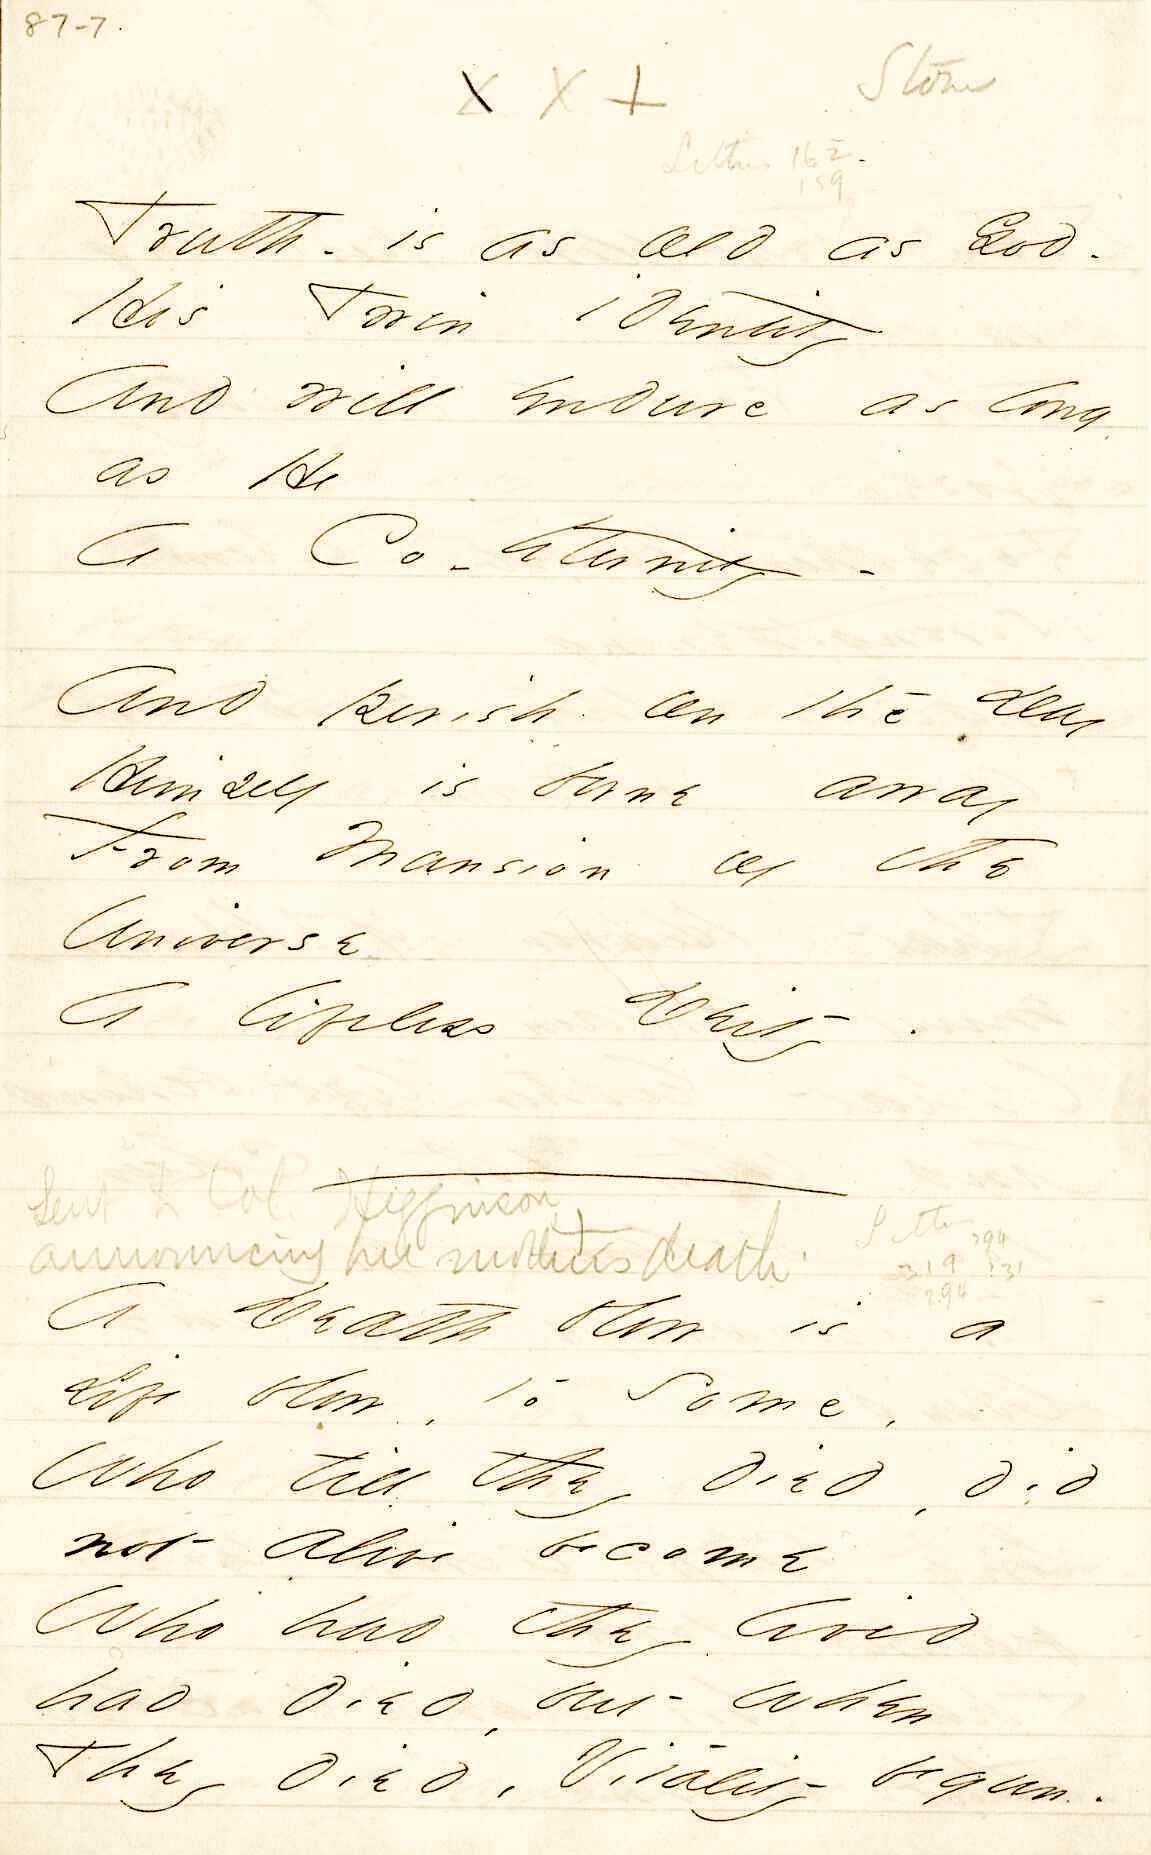 87-7.
X X +
Truth - is as old as God -
His Twin identity
And will endure as long
as He
A Co-Eternity -
And perish on the Day
Himself is borne away
From Mansion of the
Universe
A lifeless Deity .
Sent to Col. Higginson
announcing her mother's death.
A Death blow is a
Life blow, to Some,
Who till they died, did
not alive become
Who had they lived
had died, but when
They died, Vitality begun.